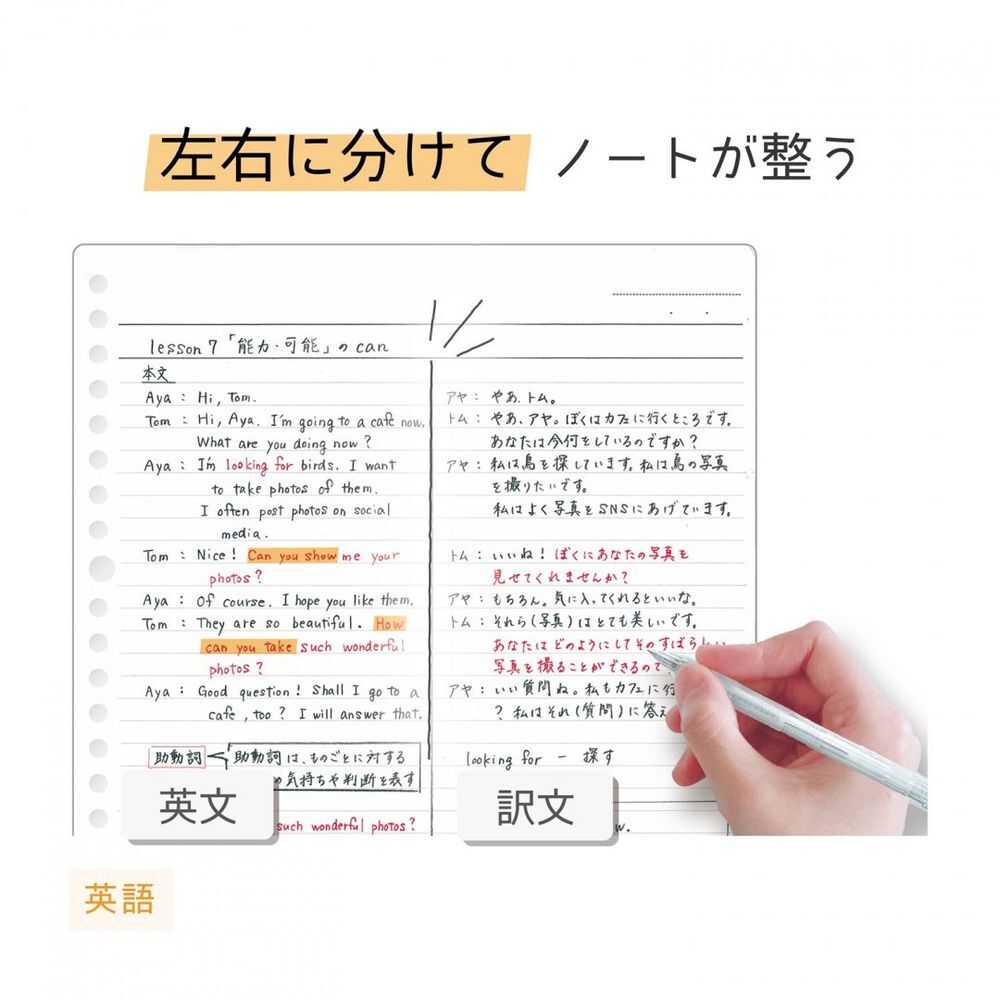 左右に分けて ノートが整う
lesson 7 「能力・可能」の can
本文
Aya : Hi, Tom.
Tom : Hi, Aya. I'm going to a cafe now.
What are you doing now ?
Aya : I'm looking for birds. I want
to take photos of them.
I often post photos on social
media.
Tom : Nice ! Can you show me your
photos ?
Aya : Of course. I hope you like them.
Tom : They are so beautiful. How
can you take such wonderful
photos ?
Aya : Good question ! Shall I go to a
cafe, too ? I will answer that.
助動詞
助動詞は、ものごとに対する
の気持ちや判断を表す
such wonderful photos ?
アヤ : やあ、トム。
トム : やあ、アヤ。ぼくはカフェに行くところです。
あなたは今何をしているのですか?
アヤ : 私は鳥を探しています。私は鳥の写真
を撮りたいです。
私はよく写真をSNSにあげています。
トム : いいね! ぼくにあなたの写真を
見せてくれませんか?
アヤ : もちろん。気に入ってくれるといいな。
トム : それら(写真)はとても美しいです。
あなたはどのようにしてそのすばらしい
写真を撮ることができるの
アヤ : いい質問ね。私もカフェに行
? 私はそれ(質問)に答え
looking for − 探す
w.
英文
訳文
英語